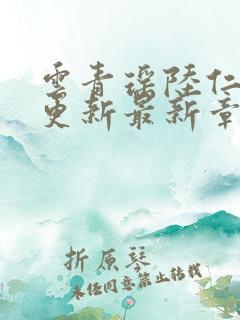 雲青瑶陸仁
更新最新章
折原琴
未经同意禁止转载